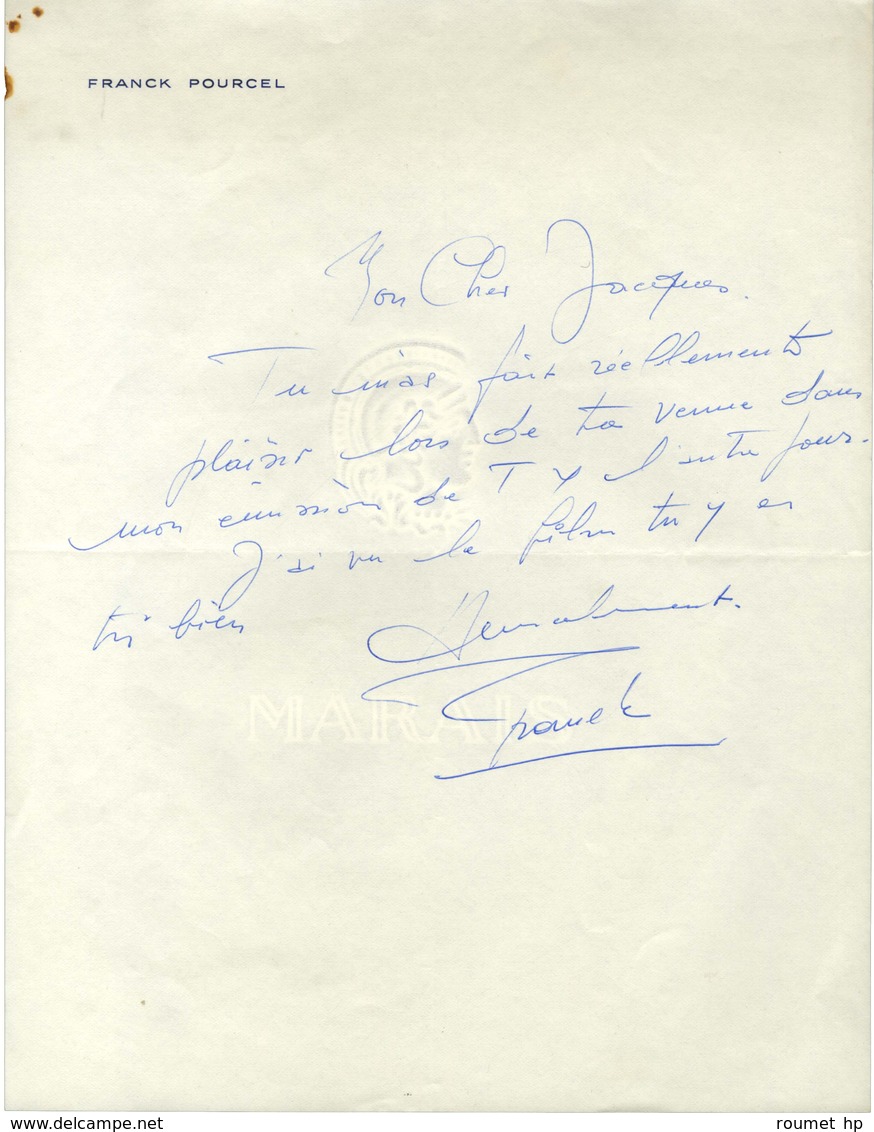 FRANCK POURCEL
Mon Cher Jacques.
Tu m'as fait réellement
plaisir lors de ta venue dans
mon émission de T V l'autre jour.
J'ai vu le film tu y es
très bien
Amicalement.
Franck
MARAIS
delcampe.net
roumet hp